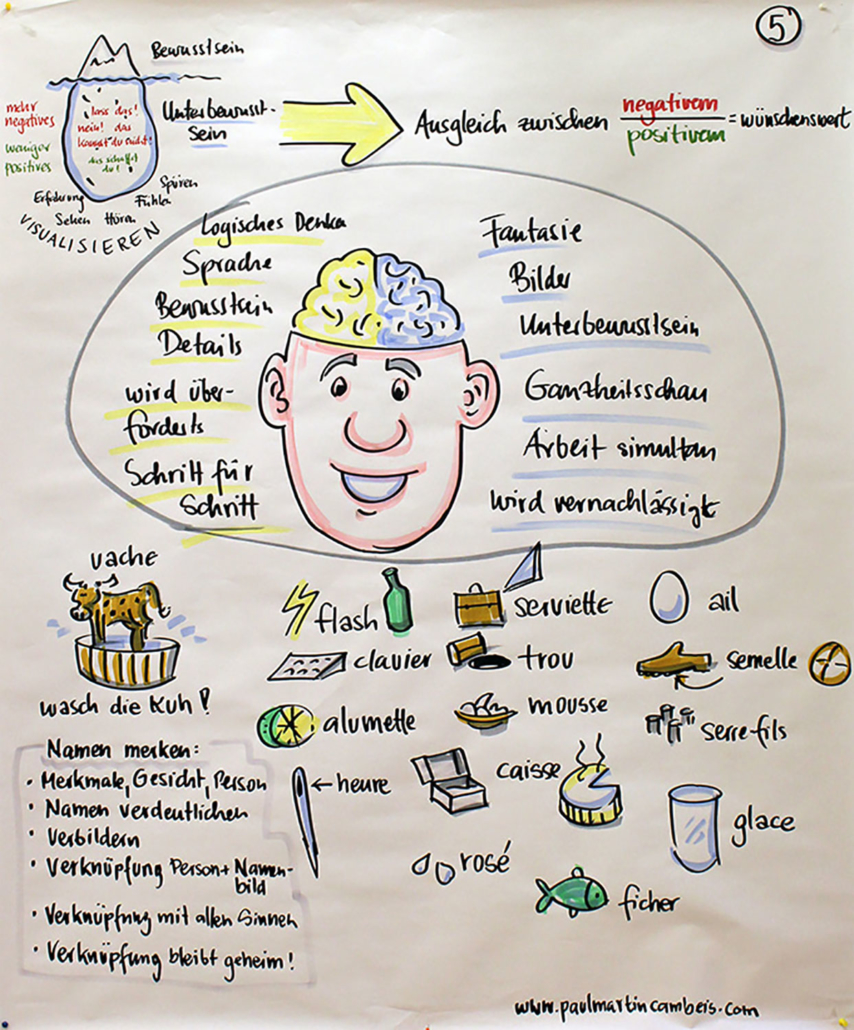 5
Bewusstsein
mehr
negatives
weniger
positives
lass das!
nein! das
kannst du nicht!
das schaffst
du!
Unterbewusst-
sein
Ausgleich zwischen negativem
positivem = wünschenswert
Erfahrung
Sehen
Hören
Fühlen
Spüren
VISUALISIEREN
Logisches Denken
Sprache
Bewusstsein
Details
wird über-
forderts
Schritt für
Schritt
Fantasie
Bilder
Unterbewusstsein
Ganzheitsschau
Arbeit simultan
wird vernachlässigt
vache
wasch die Kuh!
flash
serviette
ail
clavier
trou
semelle
alumette
mousse
serre-fils
heure
caisse
glace
rosé
ficher
Namen merken:
• Merkmale, Gesicht, Person
• Namen verdeutlichen
• Verbildern
• Verknüpfung Person + Namen-
bild
• Verknüpfung mit allen Sinnen
• Verknüpfung bleibt geheim!
www.paulmartincambeis.com